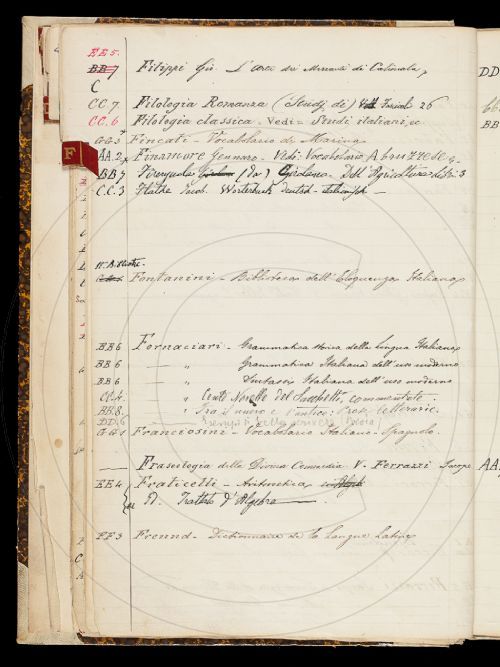 EE 5.
BB 7 Filippi Gio. L'Arte dei Mercanti di Calimala,
C
CC. 7 Filologia Romanza (Studj di) 26
CC. 6 Filologia classica. Vedi = Studi italiani, c
GG 3 Fincati - Vocabolario di Marina
AA. 2 Finamore Gennaro. Vedi: Vocabolario Abruzzese.
F
BB 7 Firenzuola (da) Girolamo. Dell'Agricoltura: libri 3
CC. 3 Flathe Jacob. Worterbuch deutsch-italienisch -
Fontanini - Biblioteca dell'Eloquenza Italiana
BB 6 Fornaciari - Grammatica storica della lingua Italiana
BB 6 - " Grammatica Italiana dell'uso moderno
BB 6 - " Sintassi Italiana dell'uso moderno
CC. 4. " Cento Novelle del Sacchetti, commentate.
BB. 8. " Tra il nuovo e l'antico: Prose letterarie.
DD. 6
GG 1 Franciosini - Vocabolario Italiano-Spagnolo.
Fraseologia della Divina Commedia V. Ferrazzi Jacopo AA.
EE 4 Fraticelli - Aritmetica
Id. Trattato d'Algebra
FF 3 Freund - Dictionnaire de la langue Latine
DD
BB